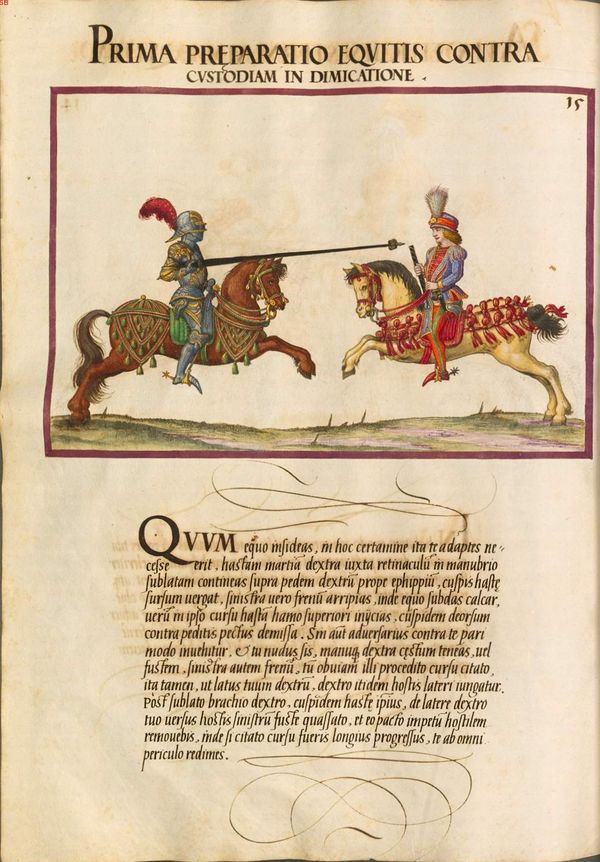 58
PRIMA PREPARATIO EQVITIS CONTRA
CVSTODIAM IN DIMICATIONE .
15
QVVM equo insideas, in hoc certamine ita te adaptes ne=
cesse erit, hastam martiā dextra iuxta retinaculū in manubrio
sublatam contineas supra pedem dextrū prope ephippiū, cuspis hastę
sursum vergat, sinistra vero frenū arripias, inde equo subdas calcar,
verū in ipso cursu hastā hamo superiori inijcias, cuspidem deorsum
contra peditis pectus demissa. Sin aut adversarius contra te pari
modo invehitur, & tu nudus sis, manuq dextra cęstum teneas, vel
fustem, sinistra autem frenū, tu obviam illi procedito cursu citato,
ita tamen, ut latus tuum dextrū, dextro itidem hostis lateri iungatur.
Post sublato brachio dextro, cuspidem hastę ipius, de latere dextro
tuo versus hostis sinistrū fuste quassato, et eo pacto impetū hostilem
removebis, inde si citato cursu fueris longius progressus, te ab omni
periculo redimes.